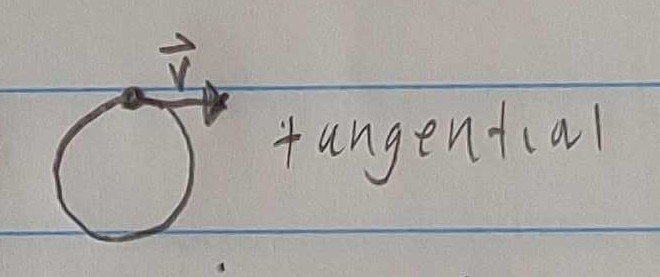 v⃗
tangential